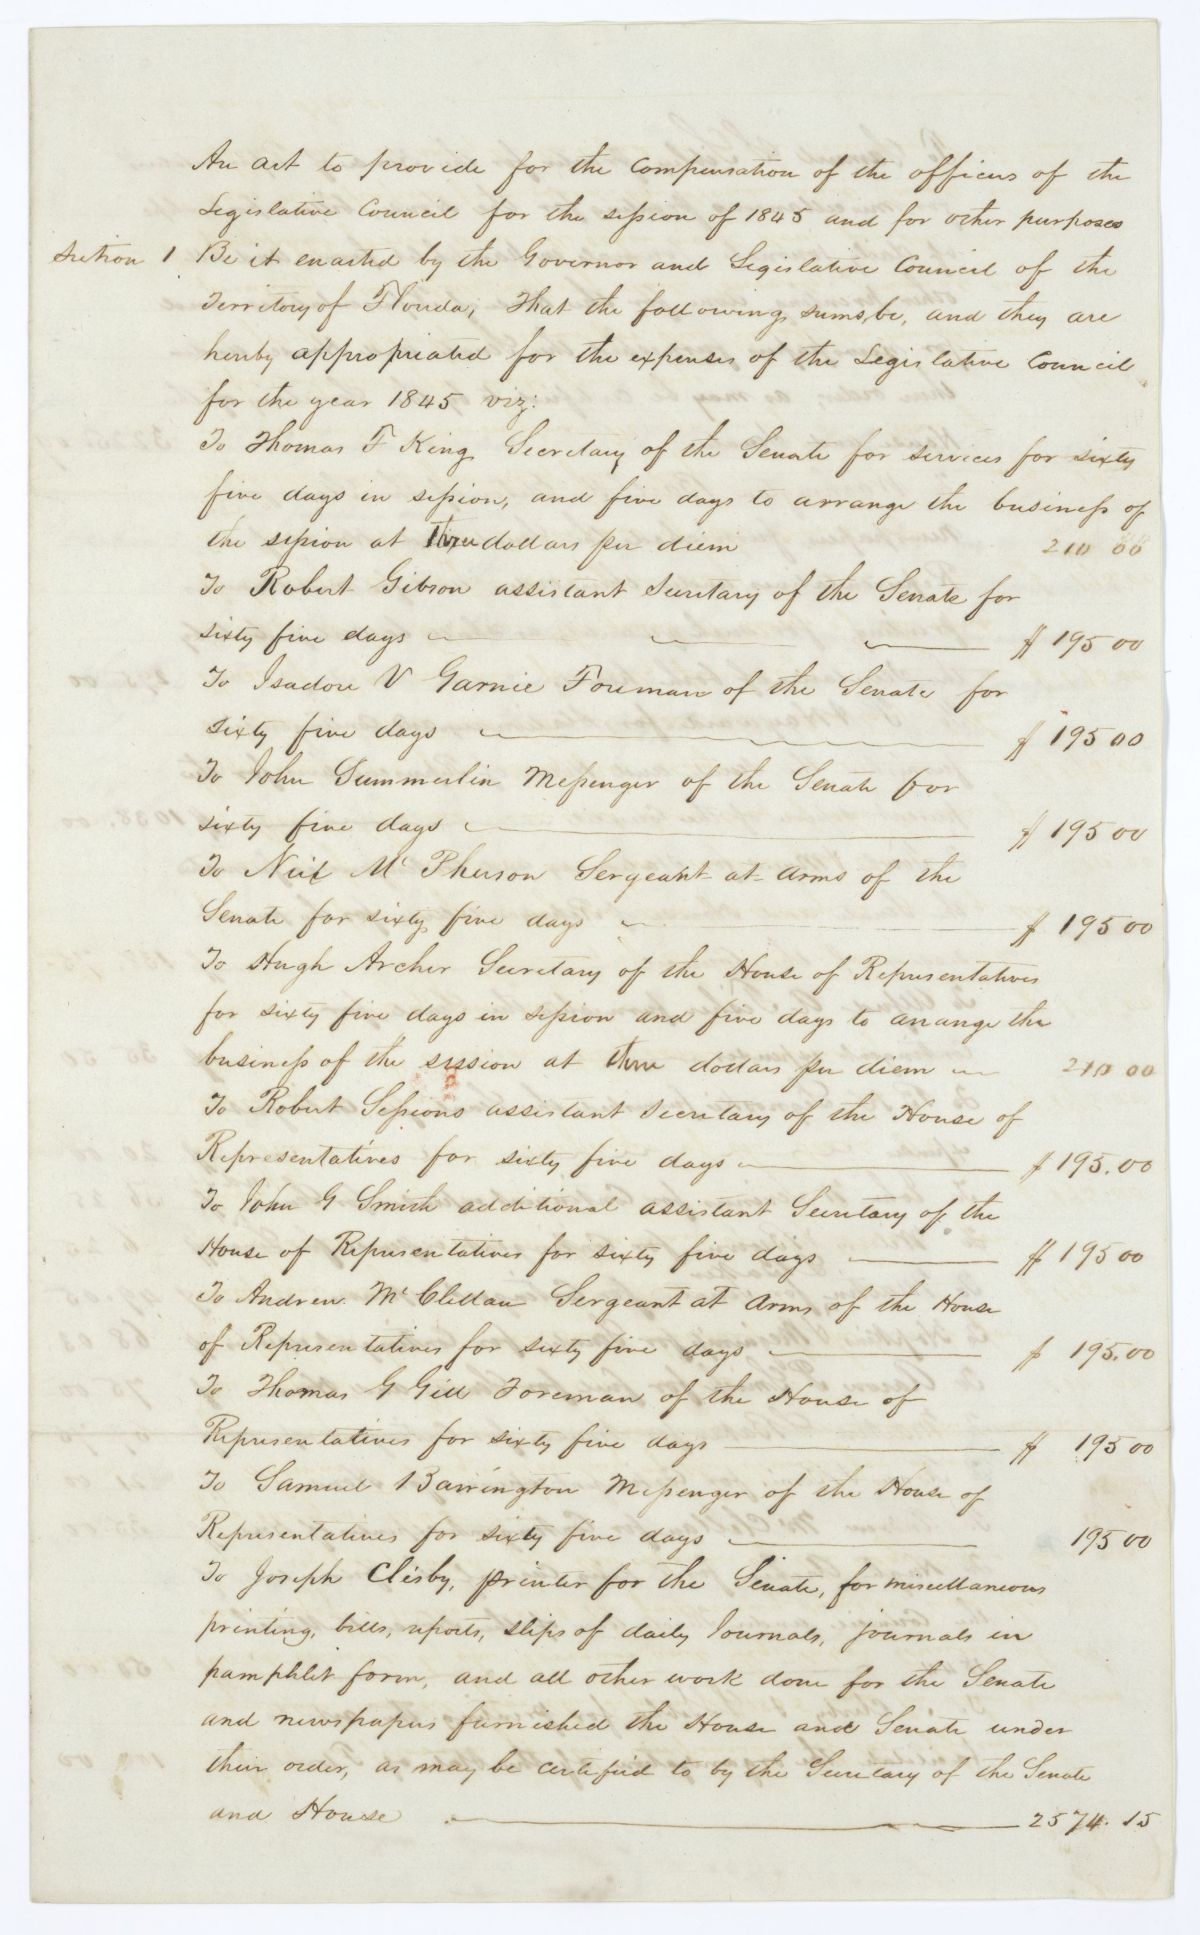 An act to provide for the Compensation of the officers of the
Legislative Council for the session of 1845 and for other purposes
Section 1 Be it enacted by the Governor and Legislative Council of the
Territory of Florida, That the following sums, be, and they are
hereby appropriated for the expenses of the Legislative Council
for the year 1845 viz:
To Thomas F King Secretary of the Senate for services for sixty
five days in session, and five days to arrange the business of
the session at three dollars per diem 210 00
To Robert Gibson assistant Secretary of the Senate for
sixty five days $ 195 00
To Isadore V Garnie Foreman of the Senate for
sixty five days $ 195 00
To John Summerlin Messenger of the Senate for
sixty five days $ 195 00
To Neil McPherson Sergeant-at-arms of the
Senate for sixty five days $ 195 00
To Hugh Archer Secretary of the House of Representatives
for sixty five days in session and five days to arrange the
business of the session at three dollars per diem 210 00
To Robert Sessions assistant Secretary of the House of
Representatives for sixty five days $ 195.00
To John G Smith additional assistant Secretary of the
House of Representatives for sixty five days $ 195 00
To Andrew McClellan Sergeant at arms of the House
of Representatives for sixty five days $ 195.00
To Thomas G Gill Foreman of the House of
Representatives for sixty five days $ 195 00
To Samuel Barrington Messenger of the House of
Representatives for sixty five days 195 00
To Joseph Clisby, printer for the Senate, for miscellaneous
printing, bills, reports, slips of daily Journals, journals in
pamphlet form, and all other work done for the Senate
and newspapers furnished the House and Senate under
their order, as may be certified to by the Secretary of the Senate
and House 2574.15